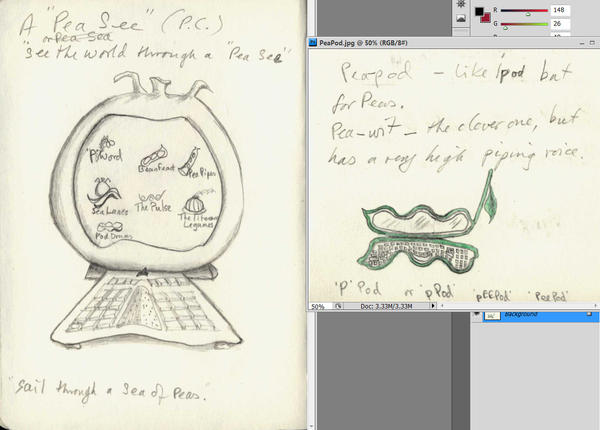 A "Pea See" (P.C.)
or Pea Sea
"See the world through a "Pea See"
'P' Word
Beanfeast
Pea Pipes
Sea Lanes
The Pulse
The
Legumes
Pod Drums
"Sail through a Sea of Peas."
R
148
G
26
40
PeaPod.jpg @ 50% (RGB/8#)
Peapod – like ipod but
for Peas.
Pea-wit – the clever one, but
has a very high piping voice.
'P' Pod or 'pPod' 'pEEPod' 'PeePod'
50%
Doc: 3.33M/3.33M
Background